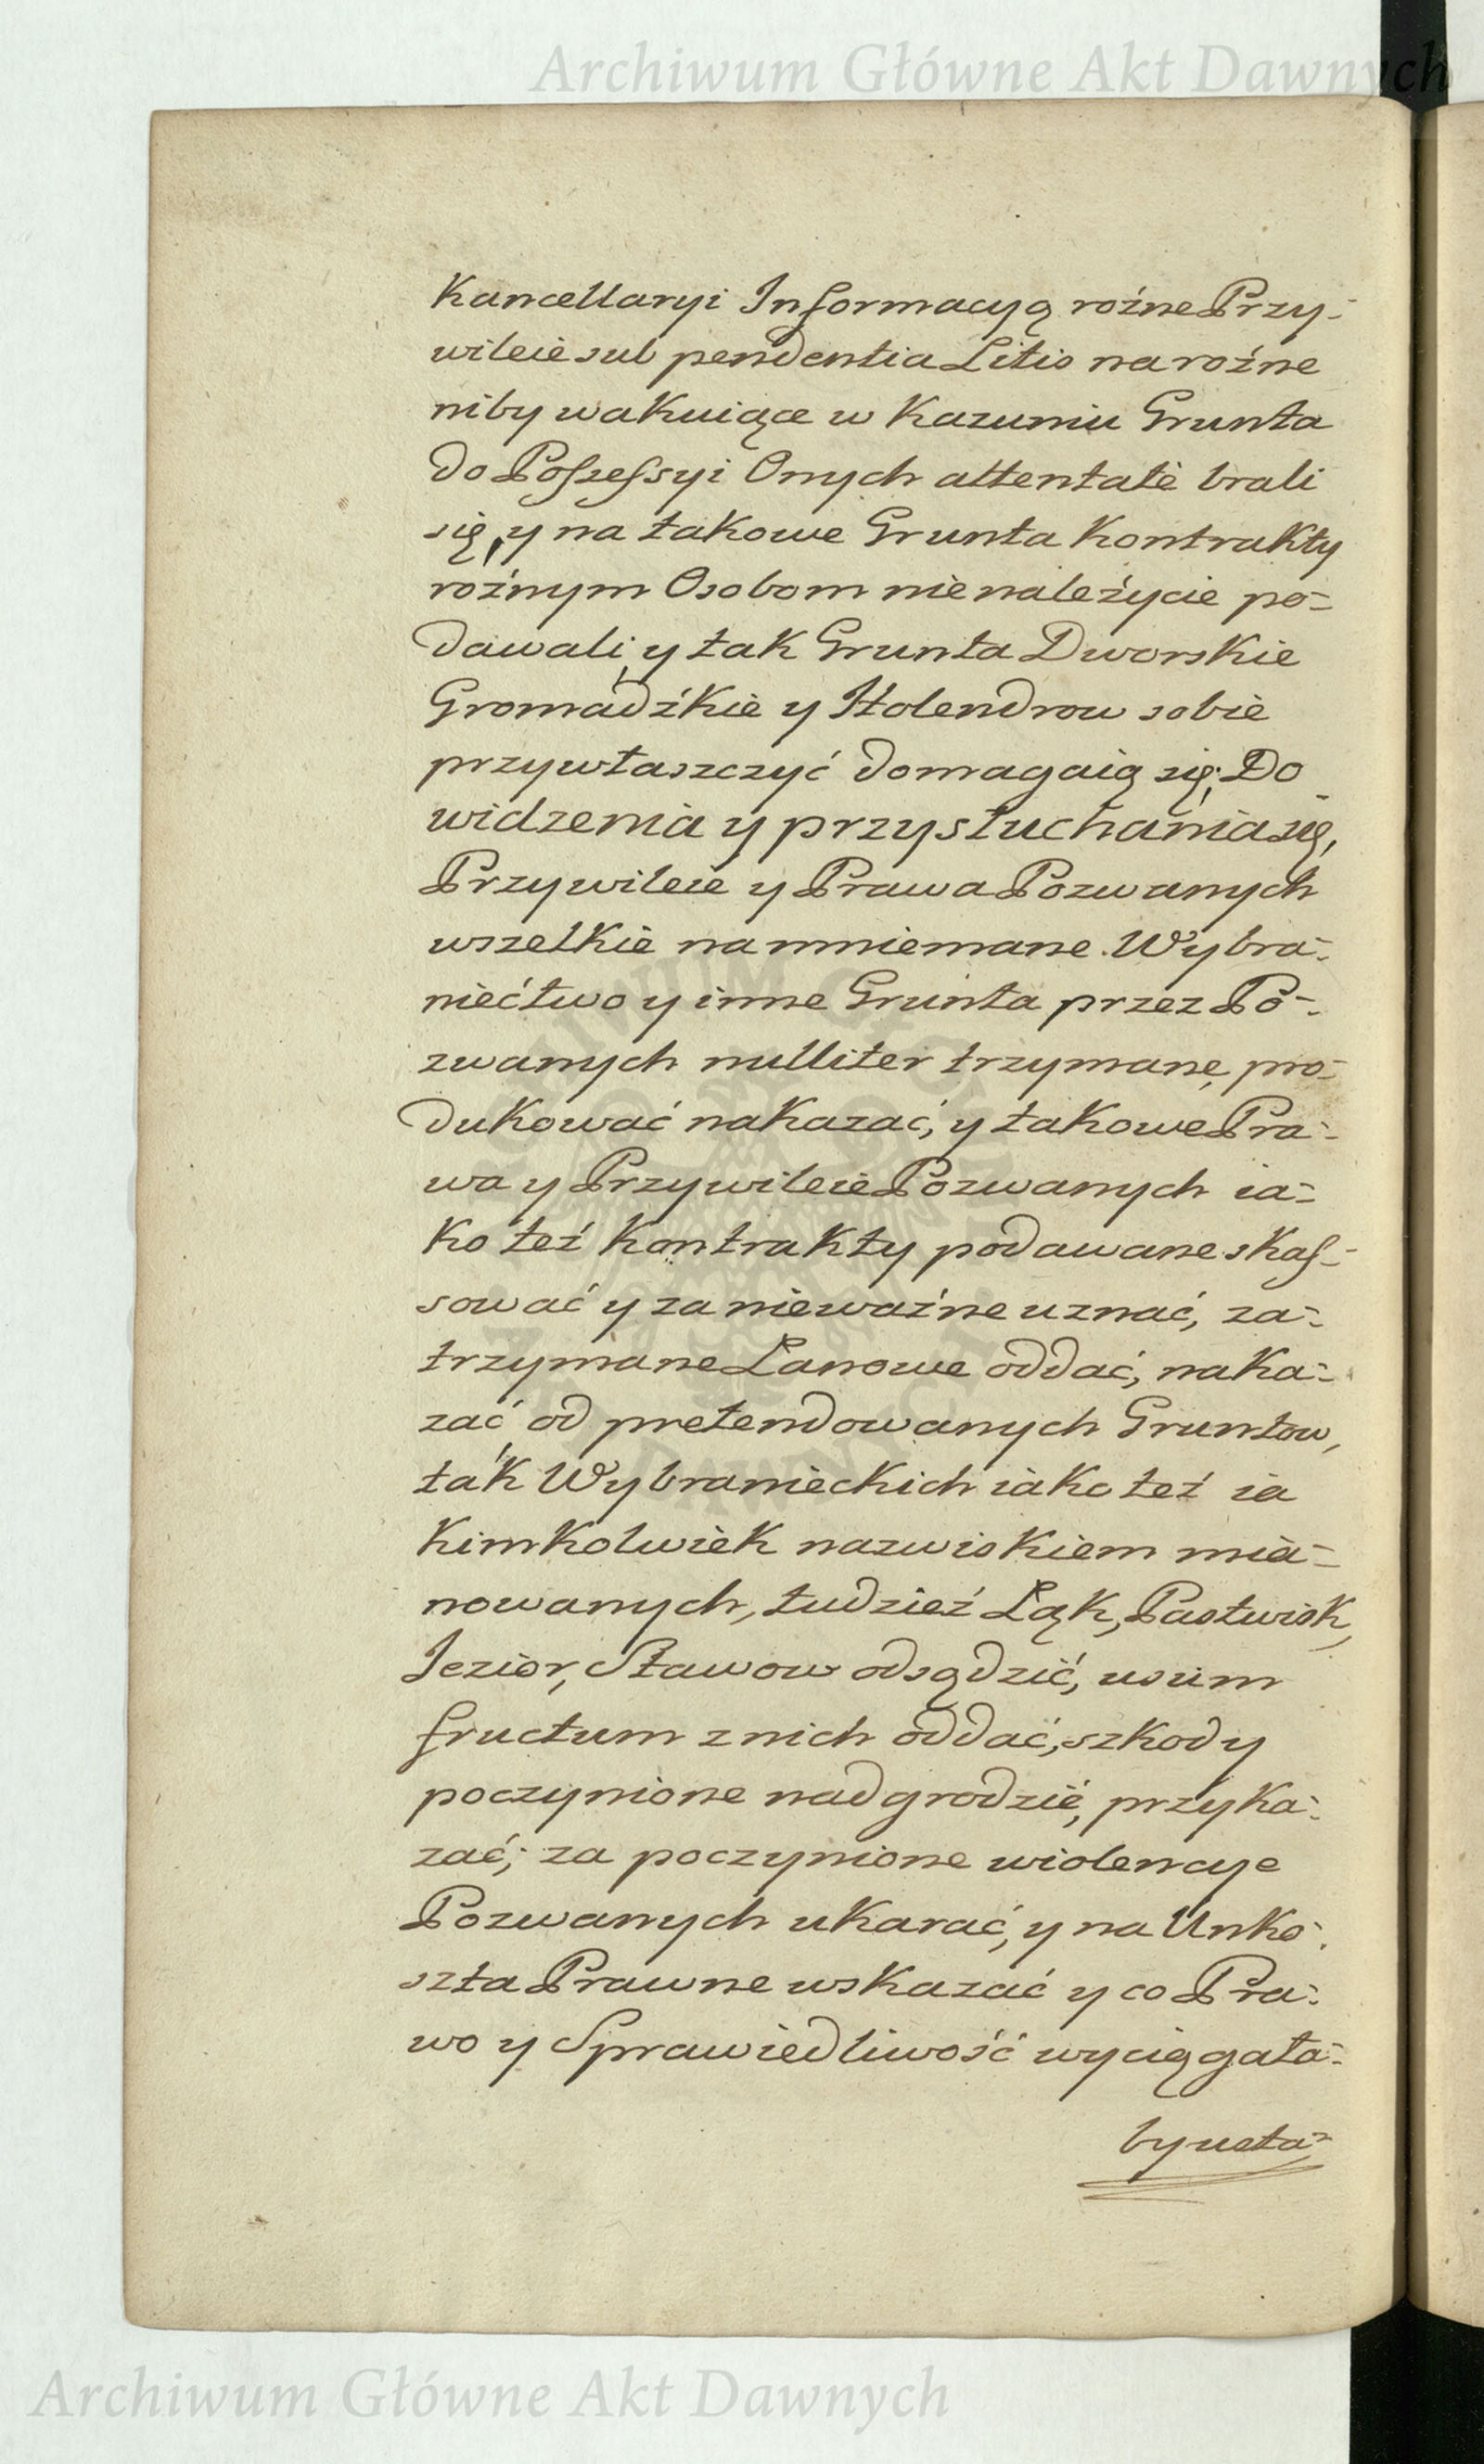 Archiwum Główne Akt Dawnych
Kancellaryi Informacyą rożne Przy-
wileie sub pendentia Litis na rożne
niby wakuiące w Kazuniu Grunta
do Possessyi Onych attentatè brali
się, y na takowe Grunta Kontrakty
rożnym Osobom nienależycie po-
dawali, y tak Grunta Dworskie
Gromadźkie y Holendrow sobie
przywłaszczyć domagaią się; Do
widzenia y przysłuchania się,
Przywileie y Prawa Pozwanych
wszelkie na mniemane Wybra-
niećtwo y inne Grunta przez Po-
zwanych nulliter trzymane, pro-
dukować nakazać, y takowe Pra-
wa y Przywileie Pozwanych ia-
ko też Kontrakty podawane skas-
sować y za nieważne uznać, za-
trzymane Łanowe oddać, naka-
zać od pretendowanych Gruntow,
tak Wybranieckich iako też ia
kimkolwiek nazwiskiem mia-
nowanych, tudzież Łąk, Pastwisk,
Jezior, Stawow odsądzić, usum
fructum z nich oddać, szkody
poczynione nadgrodzić, przyka-
zać; za poczynione wiolencye
Pozwanych ukarać, y na Unko-
szta Prawne wskazać y co Pra-
wo y Sprawiedliwość wyciągała-
by usta-
Archiwum Główne Akt Dawnych